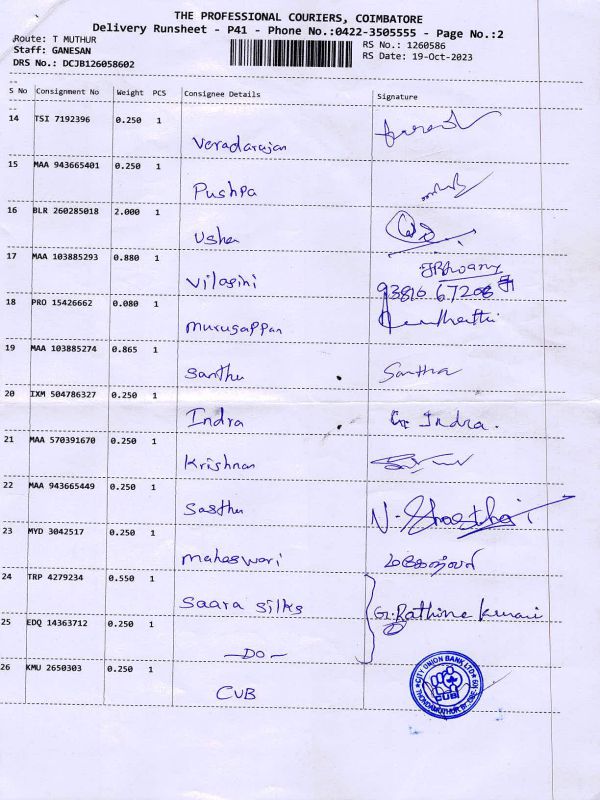 THE PROFESSIONAL COURIERS, COIMBATORE
Delivery Runsheet - P41 - Phone No.:0422-3505555 - Page No.:2
Route: T MUTHUR
Staff: GANESAN
DRS No.: DCJB126058602
RS No.: 1260586
RS Date: 19-Oct-2023
S No Consignment No Weight PCS Consignee Details Signature
14 TSI 7192396 0.250 1
Veradarajan
15 MAA 943665401 0.250 1
Pushpa
16 BLR 260285018 2.000 1
Usha
17 MAA 103885293 0.880 1
Vilasini 93816 67208
18 PRO 15426662 0.080 1
Murugappan
19 MAA 103885274 0.865 1
Santhu Santha
20 IXM 504786327 0.250 1
Indra G. Indra.
21 MAA 570391670 0.250 1
Krishnan
22 MAA 943665449 0.250 1
Sasthu
23 MYD 3042517 0.250 1
Mahaswari
24 TRP 4279234 0.550 1
Saara Silks G. Rathina Kumari
25 EDQ 14363712 0.250 1
-DO-
26 KMU 2650303 0.250 1
CUB
CITY UNION BANK LTD
CUB